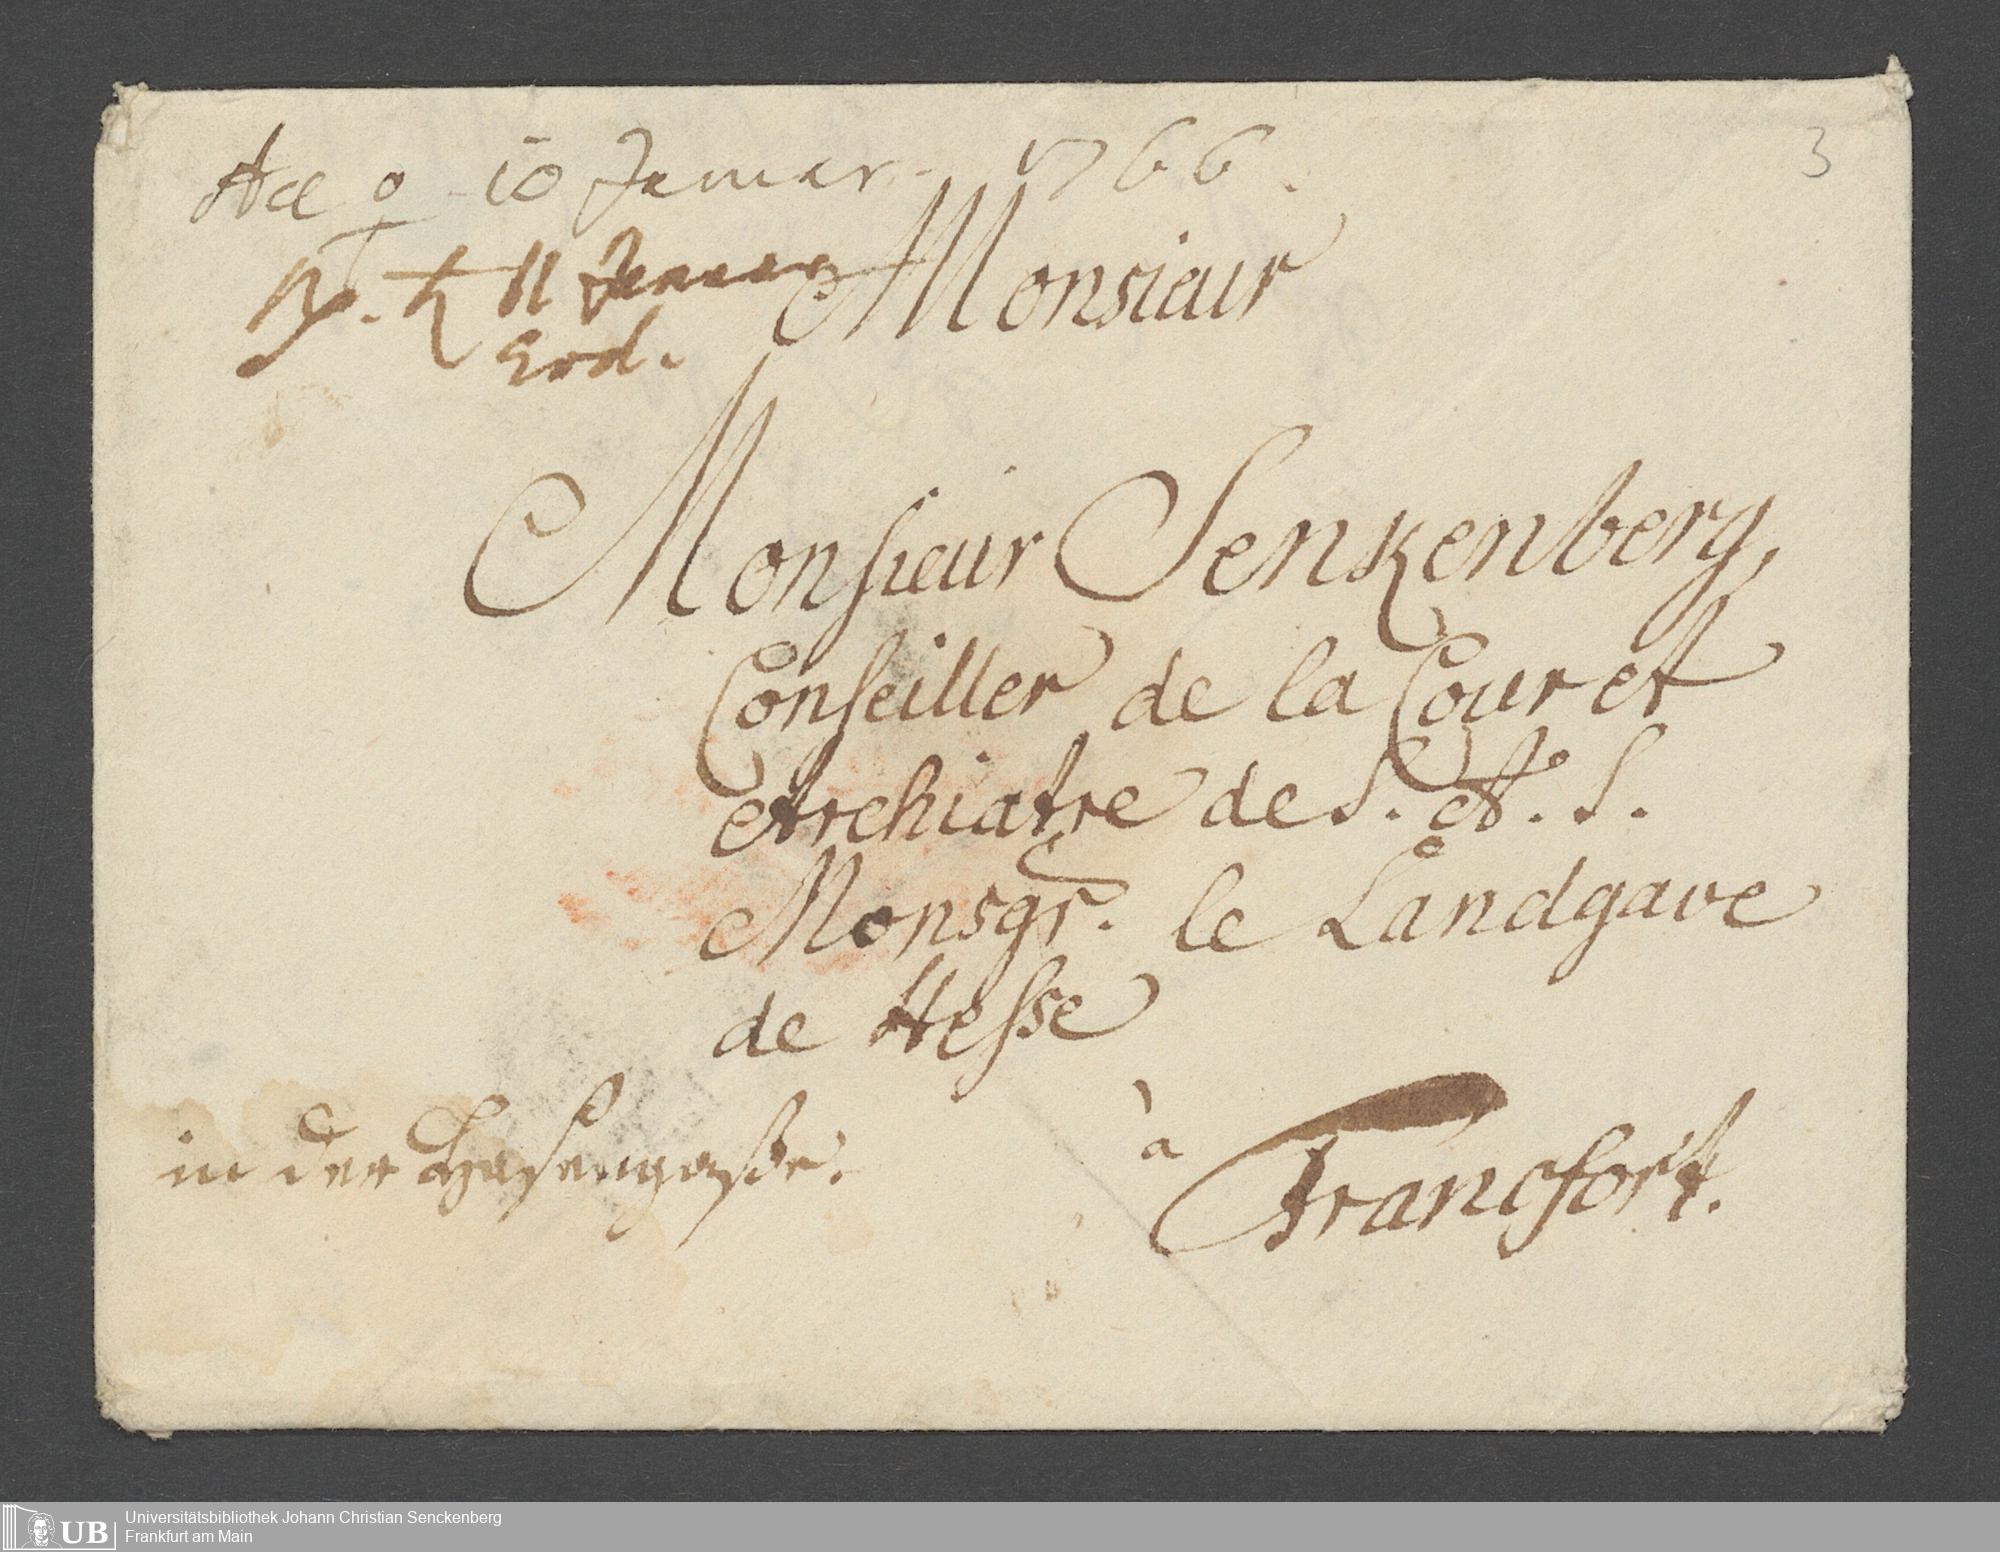 Acc ♀ 10 Januar. 1766.
3
Rp. ♄ 11 Januar
Erd.
Monsieur
Monsieur Senkenberg,
Conseiller de la Cour et
Archiatre de S. A. S.
Monsgr. le Landgave
de Hesse
in der Hasengasse.
à
Francfort.
UB
Universitätsbibliothek Johann Christian Senckenberg
Frankfurt am Main